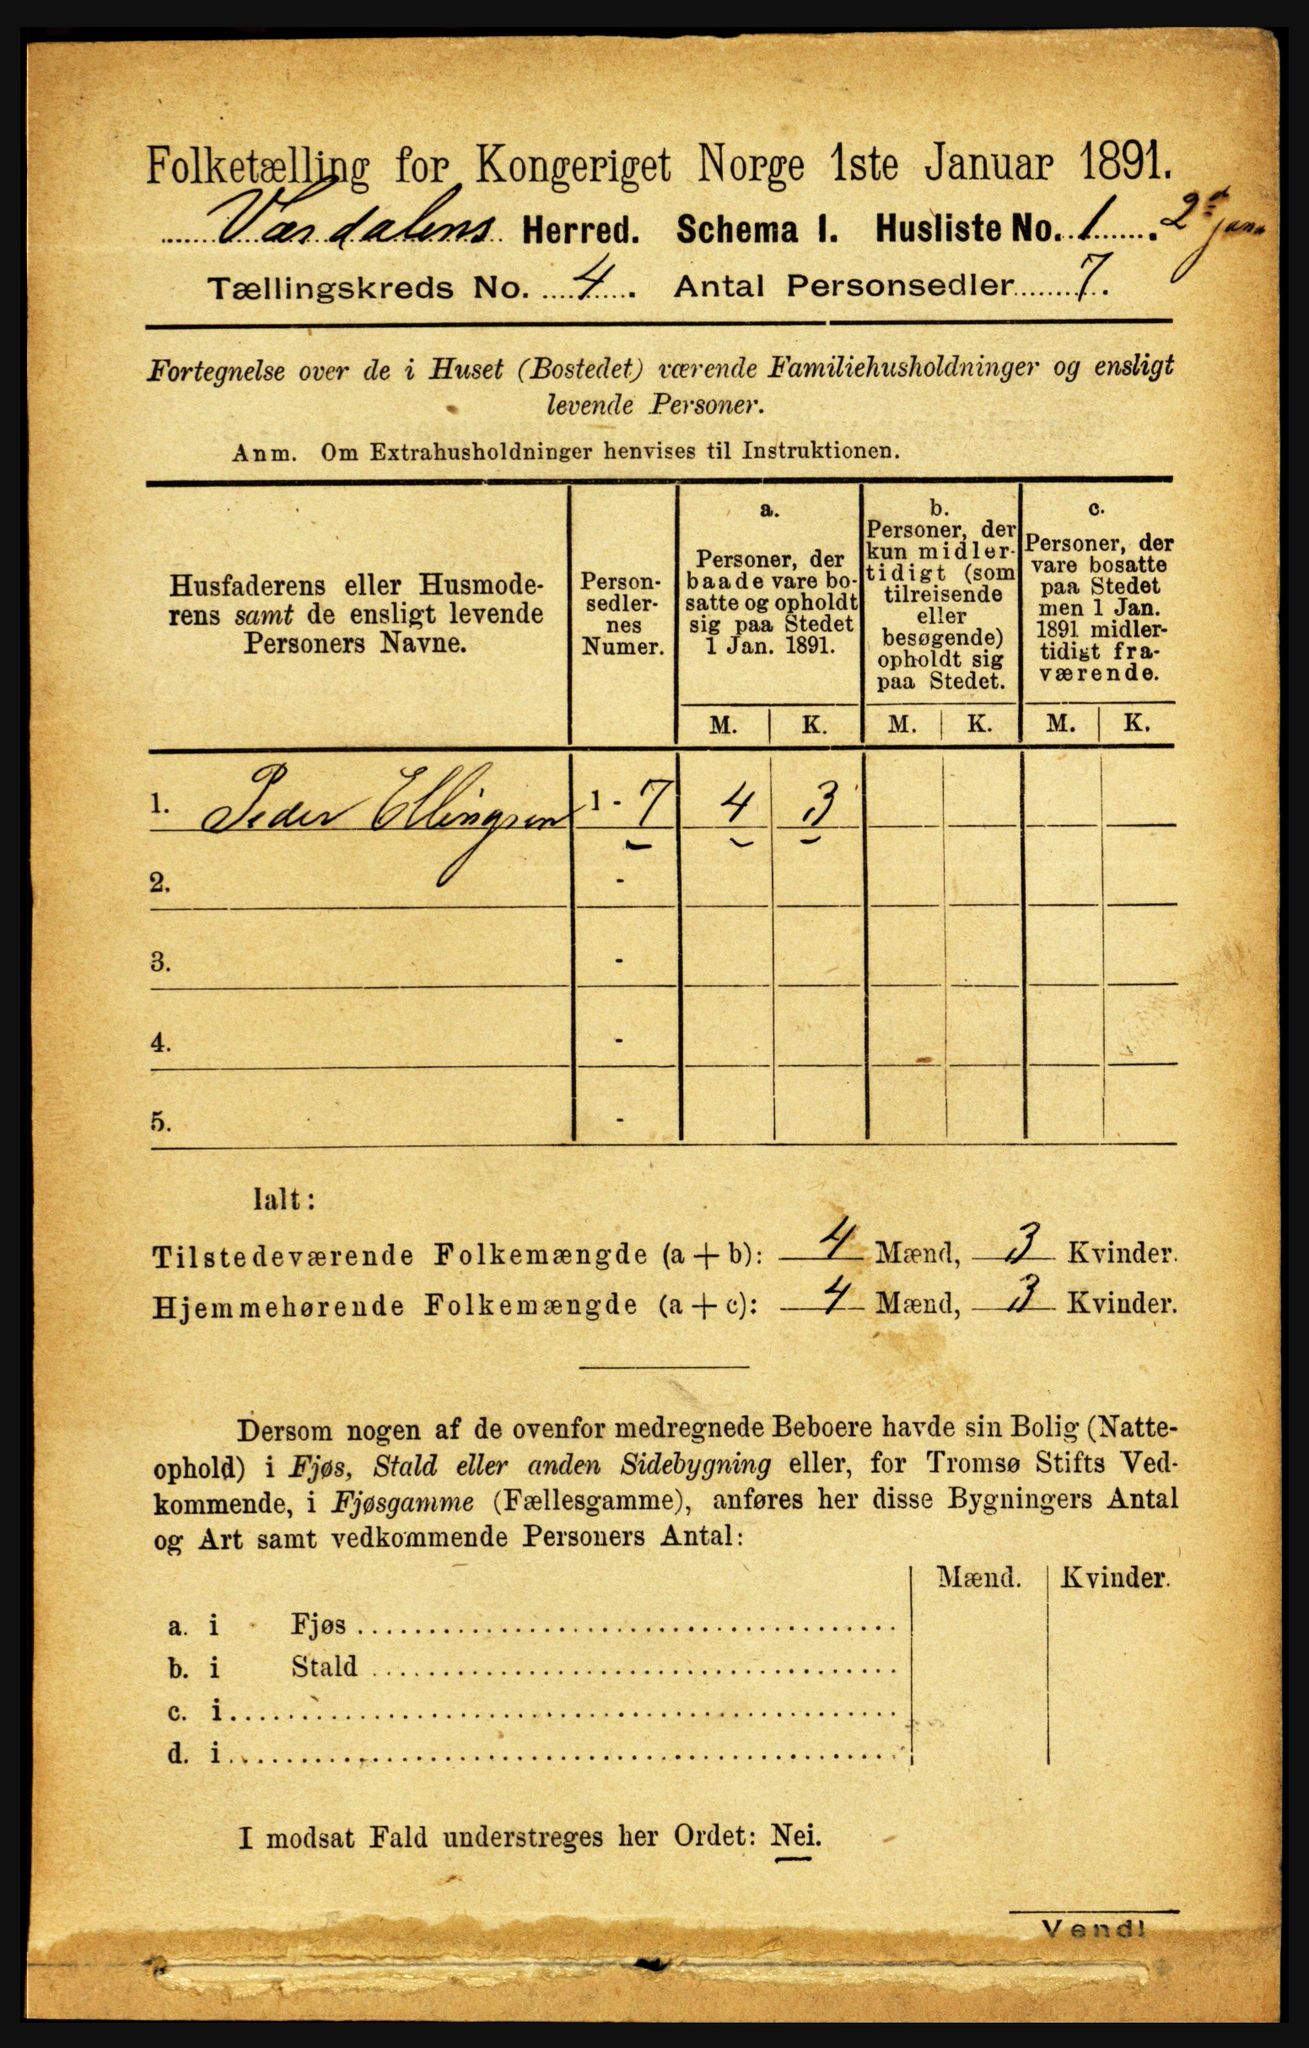 Folketælling for Kongeriget Norge 1ste Januar 1891.
Værdalens Herred. Schema I. Husliste No. 1. 2d
Tællingskreds No. 4. Antal Personsedler 7.
Fortegnelse over de i Huset (Bostedet) værende Familiehusholdninger og ensligt
levende Personer.
Anm. Om Extrahusholdninger henvises til Instruktionen.
Husfaderens eller Husmode-
rens samt de ensligt levende
Personers Navne.
Person-
sedler-
nes
Numer.
a.
Personer, der
baade vare bo-
satte og opholdt
sig paa Stedet
1 Jan. 1891.
b.
Personer, der
kun midler-
tidigt (som
tilreisende
eller
besøgende)
opholdt sig
paa Stedet.
c.
Personer, der
vare bosatte
paa Stedet
men 1 Jan.
1891 midler-
tidigt fra-
værende.
M. K. M. K. M. K.
1. Peder Ellingsen 1 - 7 4 3
2. -
3. -
4. -
5. -
Ialt:
Tilstedeværende Folkemængde (a + b): 4 Mænd, 3 Kvinder.
Hjemmehørende Folkemængde (a + c): 4 Mænd, 3 Kvinder.
Dersom nogen af de ovenfor medregnede Beboere havde sin Bolig (Natte-
ophold) i Fjøs, Stald eller anden Sidebygning eller, for Tromsø Stifts Ved-
kommende, i Fjøsgamme (Fællesgamme), anføres her disse Bygningers Antal
og Art samt vedkommende Personers Antal:
Mænd. Kvinder.
a. i Fjøs
b. i Stald
c. i
d. i
I modsat Fald understreges her Ordet: Nei.
Vend!